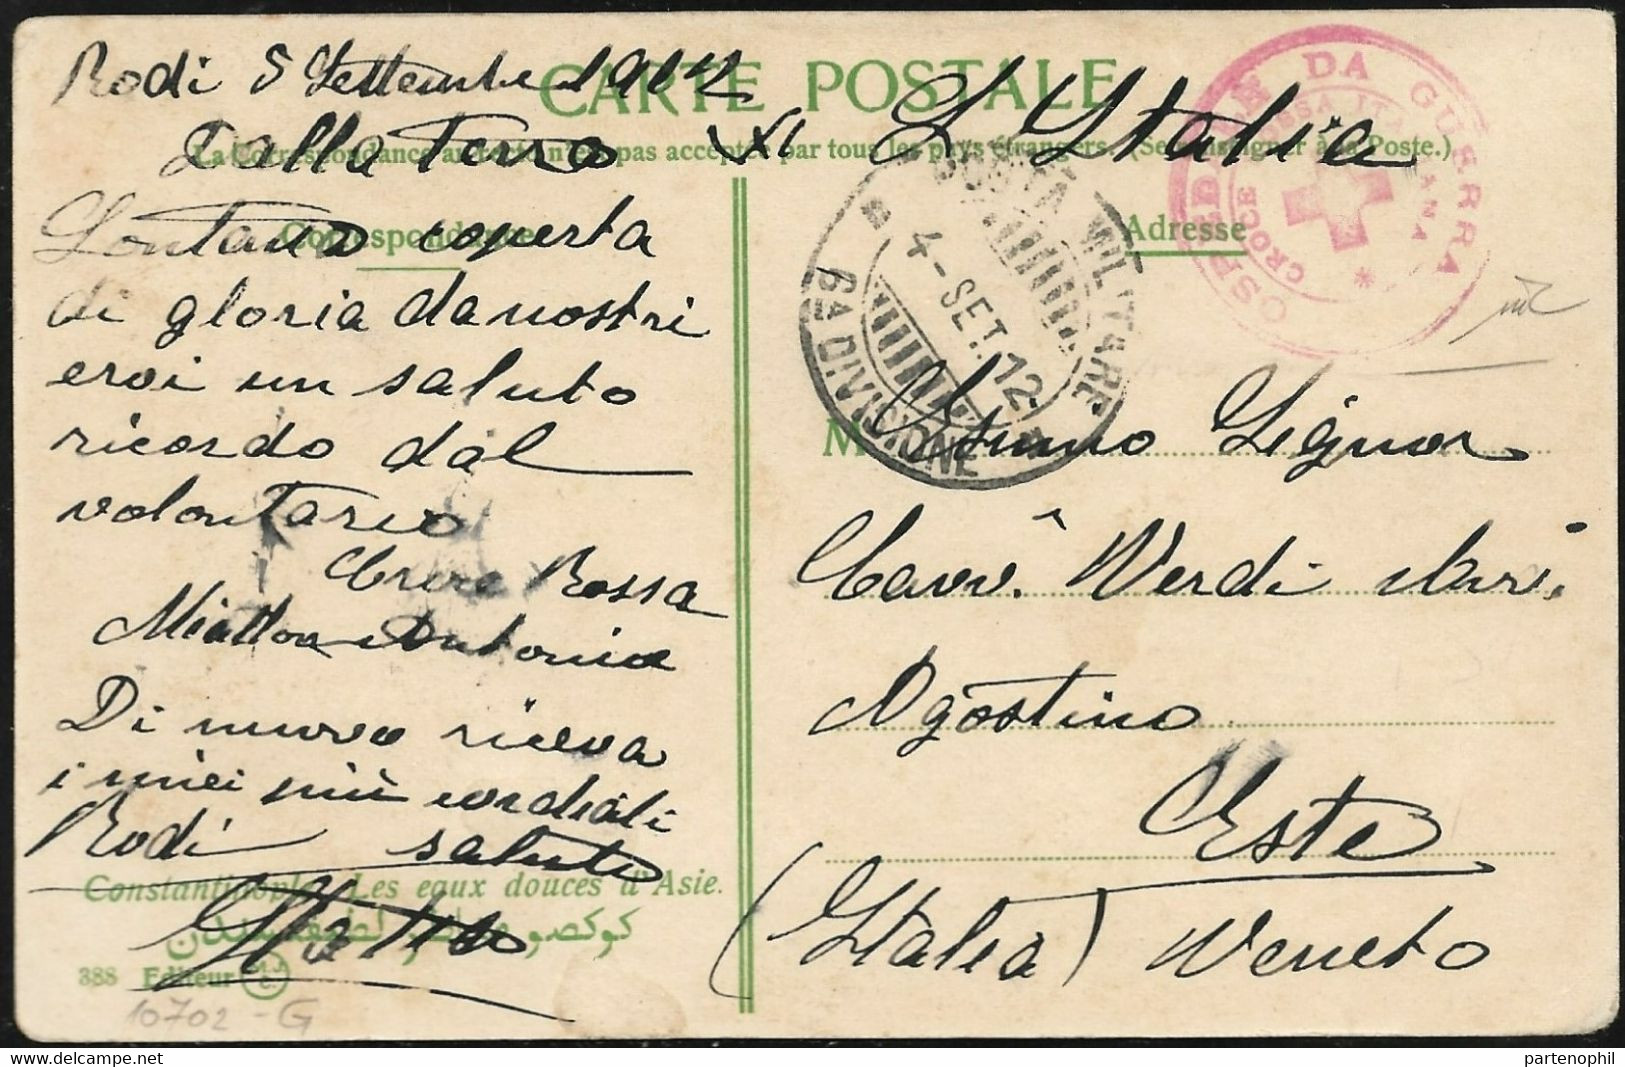 Rodi 5 Settembre 1912
CARTE POSTALE
La Correspondance au recto n'est pas acceptée par tous les pays étrangers. (Se renseigner à la Poste.)
Dalla Terra
Lontana coperta
Correspondance
di gloria da nostri
eroi un saluto
ricordo dal
volontario
Croce Rossa
Miatton Antonio
Di nuovo riceva
i miei più cordiali
Rodi saluti
Constantinople. Les eaux douces d'Asie.
388 Editeur M.J.C.
10702-G
L'Italia
OSPEDALE DA GUERRA
CROCE ROSSA ITALIANA
POSTA MILITARE
4-SET.12
6A DIVISIONE
Adresse
M
Signor
Cavv. Verdi
Agostino
Este
(Italia) Veneto
partenophil